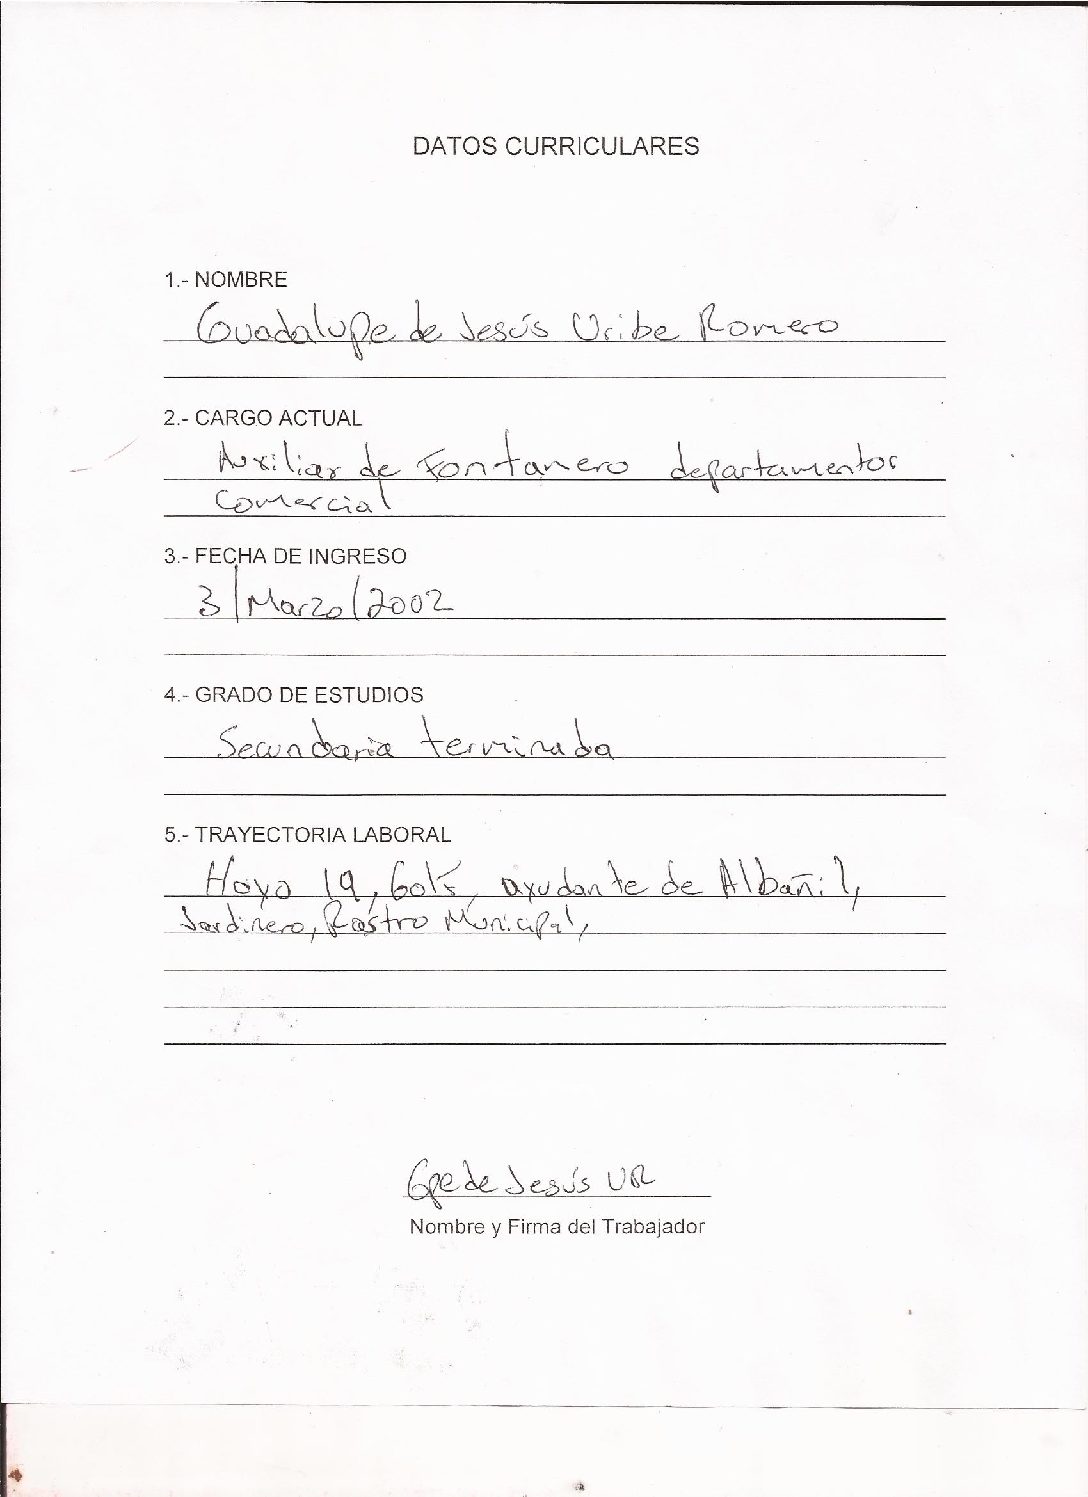 DATOS CURRICULARES
1.- NOMBRE
Guadalupe de Jesús Uribe Romero
2.- CARGO ACTUAL
Auxiliar de Fontanero departamentos
Comercial
3.- FECHA DE INGRESO
3/Marzo/2002
4.- GRADO DE ESTUDIOS
Secundaria terminada
5.- TRAYECTORIA LABORAL
Hoyo 19, Gol's, ayudante de Albañil,
Jardinero, Rastro Municipal,
Gpe de Jesús UR
Nombre y Firma del Trabajador